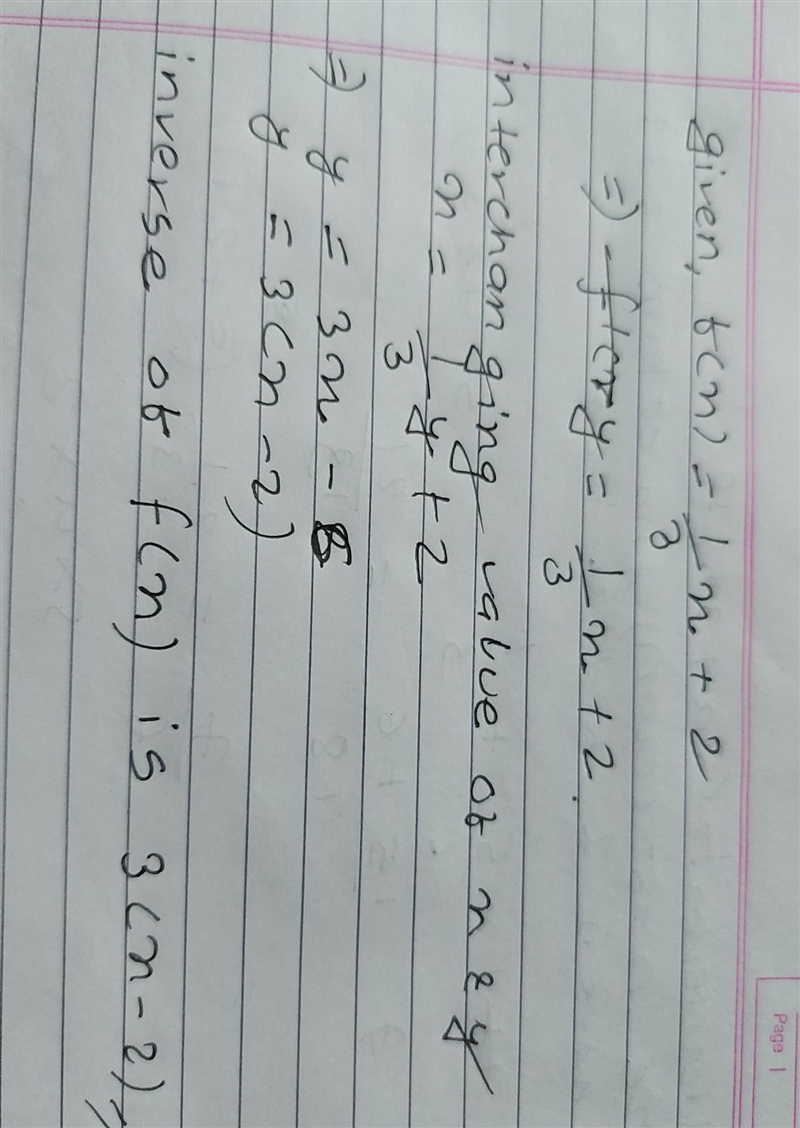 Page 1
given, f(x) = 1/3 x + 2
=> y = 1/3 x + 2.
interchanging value of x & y
x = 1/3 y + 2
=> y = 3x - 6
y = 3(x - 2)
inverse of f(x) is 3(x - 2)